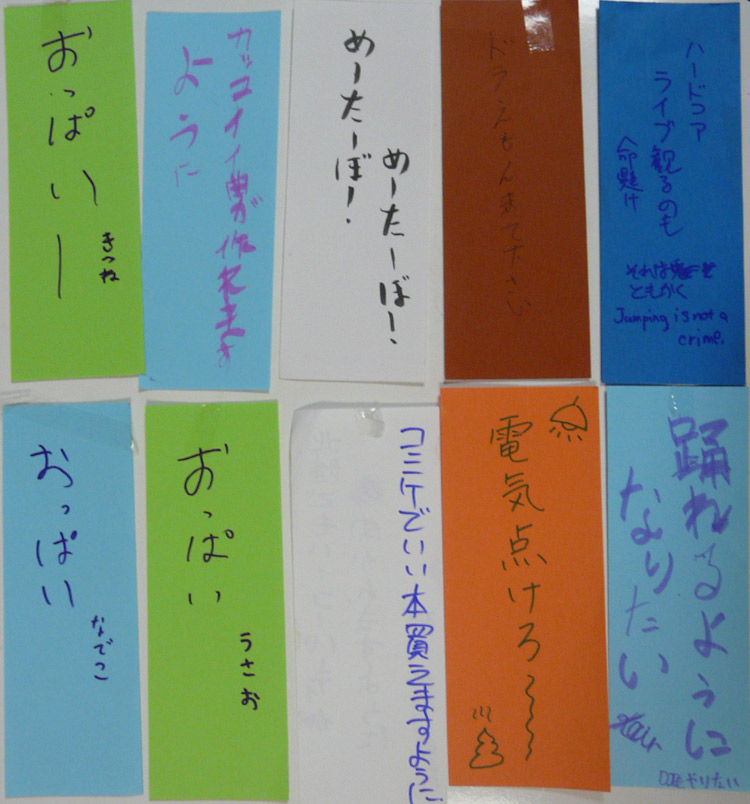 おっぱいー
きつね
カッコイイ曲が作れます
ように
めーたーぼ!
めーたーぼ!
ドラえもん来てださい
ハードコア
ライブ観るのも
命懸け
それは
ともかく
Jumping is not a
crime.
おっぱい
なでこ
おっぱい
うさお
コミケでいい本買えますように
電気点けろ〜〜〜
踊れるように
なりたい
DJもやりたい